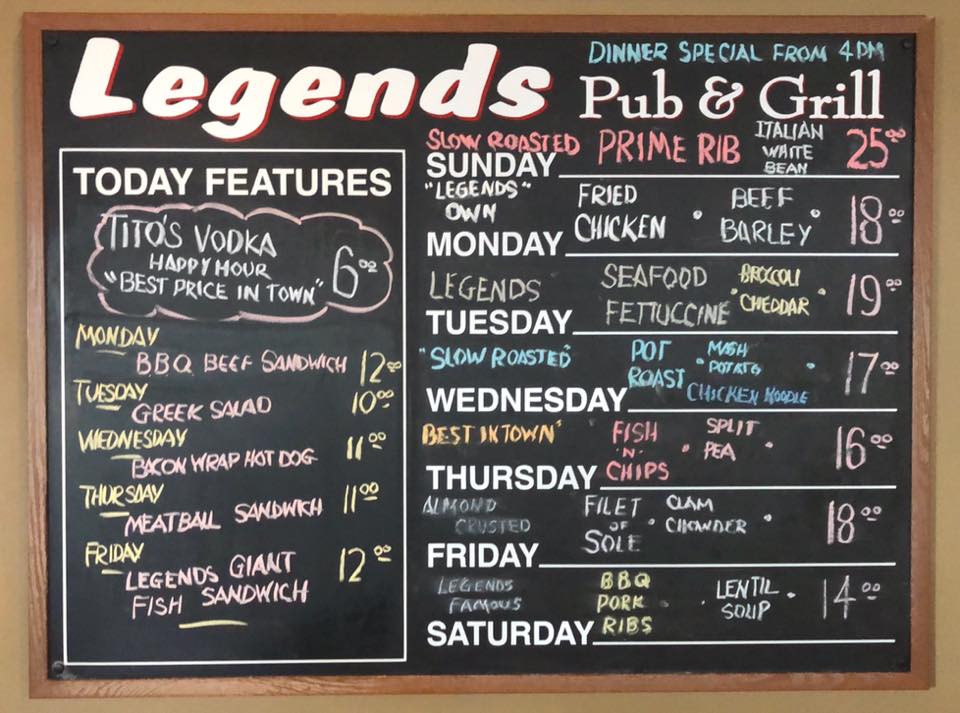 Legends
DINNER SPECIAL FROM 4PM
Pub & Grill
TODAY FEATURES
TITO'S VODKA
HAPPY HOUR
"BEST PRICE IN TOWN"
6.00
MONDAY
BBQ BEEF SANDWICH 12.00
TUESDAY
GREEK SALAD 10.00
WEDNESDAY
BACON WRAP HOT DOG 11.00
THURSDAY
MEATBALL SANDWICH 11.00
FRIDAY
LEGENDS GIANT
FISH SANDWICH
12.00
SLOW ROASTED PRIME RIB ITALIAN
WHITE
BEAN
25.00
SUNDAY
"LEGENDS"
OWN
FRIED
CHICKEN
BEEF
BARLEY
18.00
MONDAY
LEGENDS
SEAFOOD
FETTUCCINE
BROCCOLI
CHEDDAR
19.00
TUESDAY
"SLOW ROASTED"
POT
ROAST
MASH
POTATO
CHICKEN NOODLE
17.00
WEDNESDAY
BEST IN TOWN"
FISH
'N'
CHIPS
SPLIT
PEA
16.00
THURSDAY
ALMOND
CRUSTED
FILET
OF
SOLE
CLAM
CHOWDER
18.00
FRIDAY
LEGENDS
FAMOUS
BBQ
PORK
RIBS
LENTIL
SOUP
14.00
SATURDAY